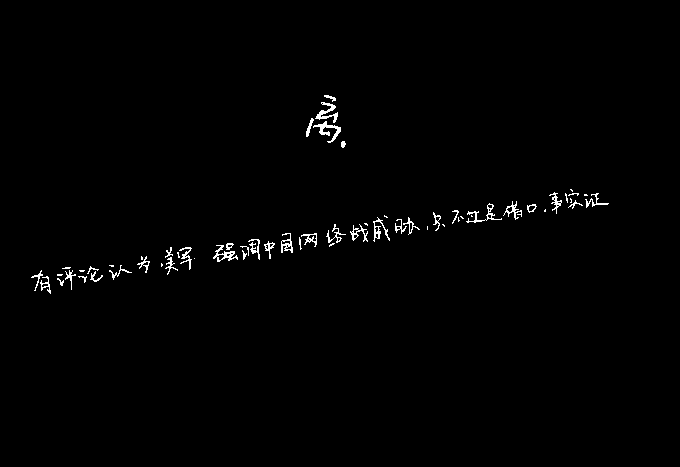 有评论认为,美军 强调中国网络战威胁,只不过是借口.事实证